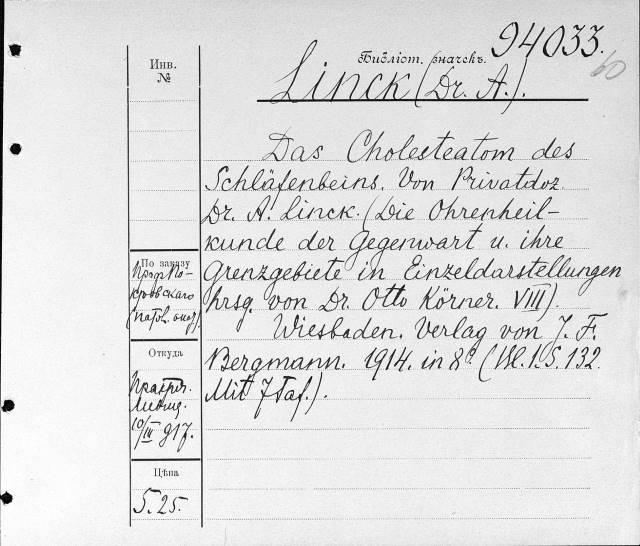 94033.
60
Библіот. значекъ.
Linck (Dr. A.).
Das Cholesteatom des
Schläfenbeins. Von Privatdoz.
Dr. A. Linck. (Die Ohrenheil-
kunde der Gegenwart u. ihre
Grenzgebiete in Einzeldarstellungen
hrsg. von Dr. Otto Körner. VIII).
Wiesbaden. Verlag von J. F.
Bergmann. 1914. in 8º. (Bl. 1. S. 132.
Mit 7 Taf.).
Инв.
№
По заказу
Проф. По-
кровскаго
Откуда
10/III 917.
Цѣна
5.25.